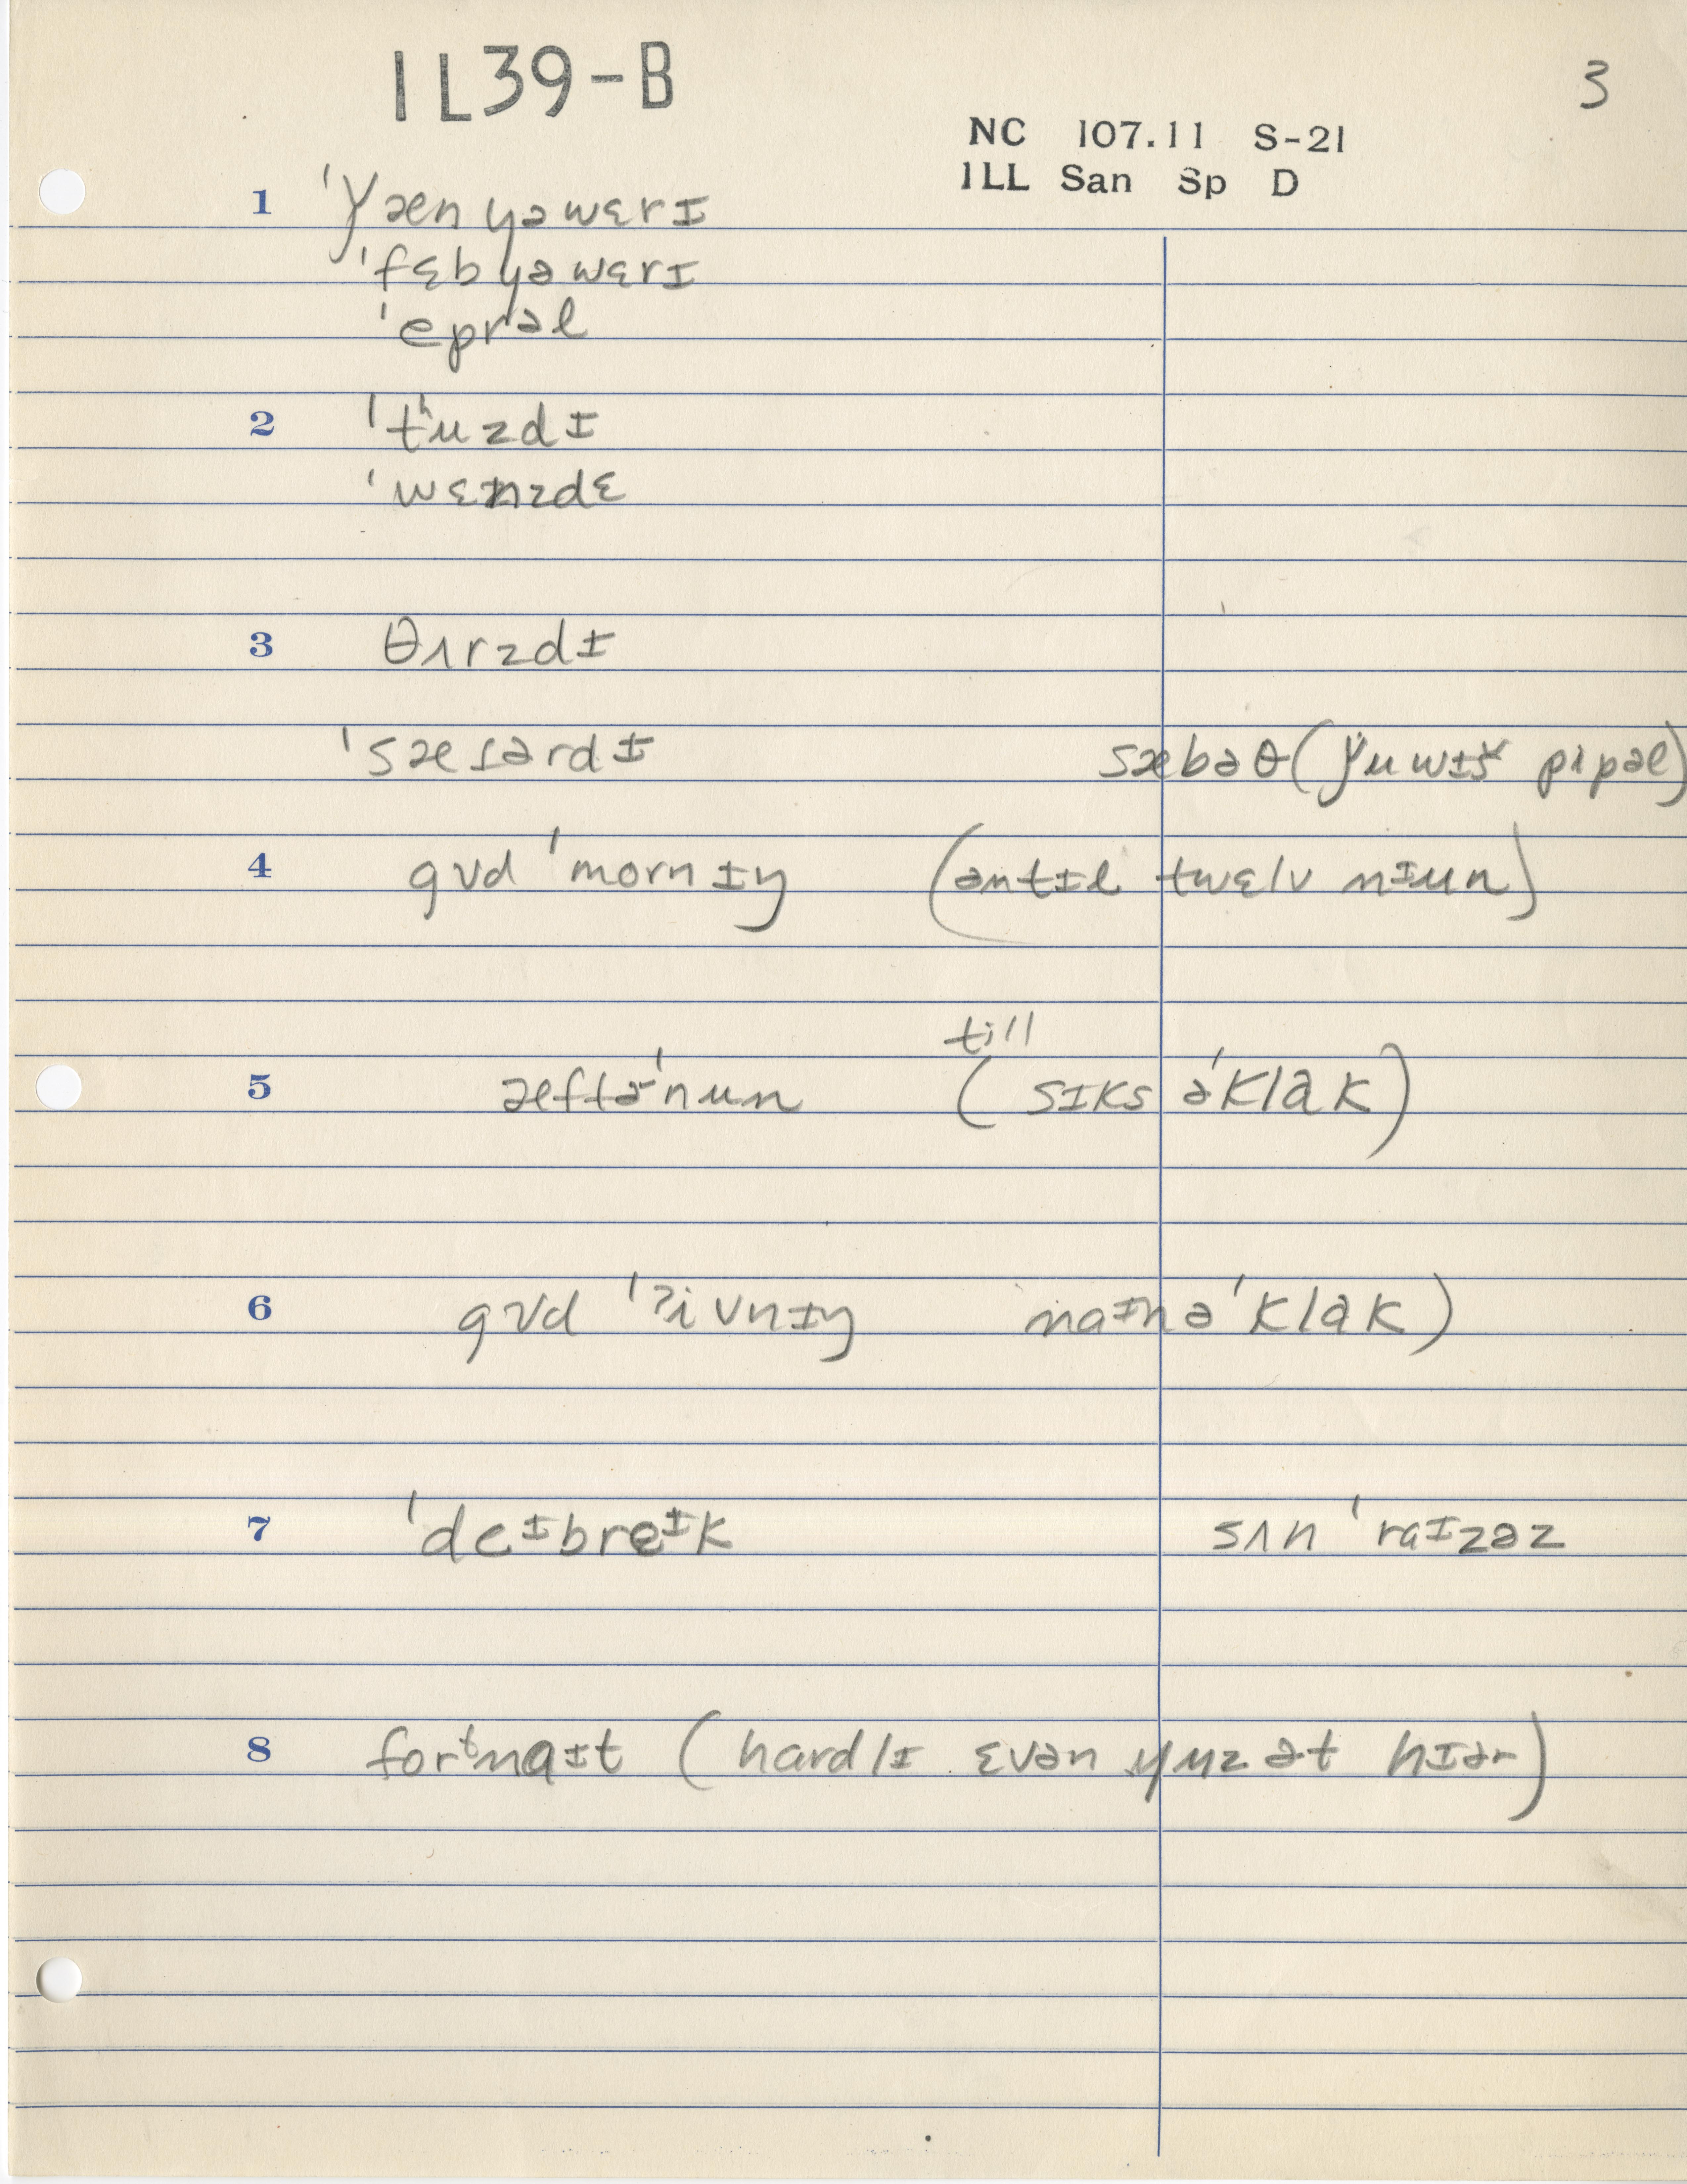 IL39-B
3
NC 107.11 S-21
ILL San Sp D
1 ˈǰænyəwɛrɪ
ˈfɛbyəwɛrɪ
ˈeprəl
2 ˈtʰuzdɪ
ˈwɛnzdɛ
3 θʌrzdɪ
ˈsæɾərdɪ sæbəθ (ǰuwɪš pipəl)
4 gʊd ˈmornɪŋ (əntɪl twɛlv nɪun)
till
5 æftɚˈnun (sɪks əˈklɑk)
6 gʊd ˈʔivnɪŋ naɪn əˈklɑk)
7 ˈdeɪbreɪk sʌn ˈraɪzəz
8 forᵗnaɪt (hardlɪ ɛvən yuz ət hɪər)